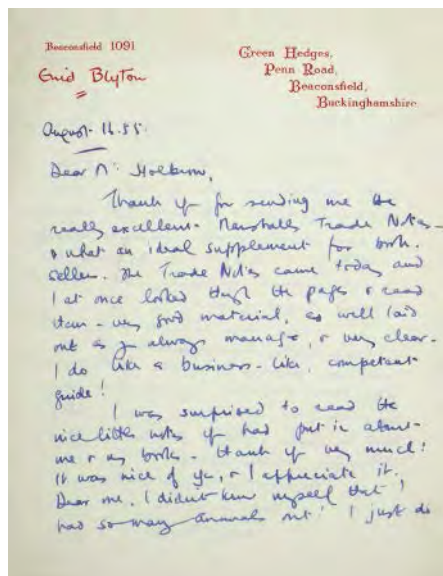 Beaconsfield 1091
Enid Blyton
Green Hedges,
Penn Road,
Beaconsfield,
Buckinghamshire
August 16. 55.
Dear Mr
Thank you for sending me the
really excellent Marshalls Trade Notes -
& what an ideal supplement for book-
sellers. The Trade Notes came today and
I at once looked through the pages & read
them - very good material, as well laid
out as you always manage, & very clear.
I do like a business-like, competent
guide!
I was surprised to read the
nice little notes you had put in about
me & my books - thank you very much!
It was nice of you, & I appreciate it.
Dear me, I didn't know myself that I
had so many annuals out! I just do